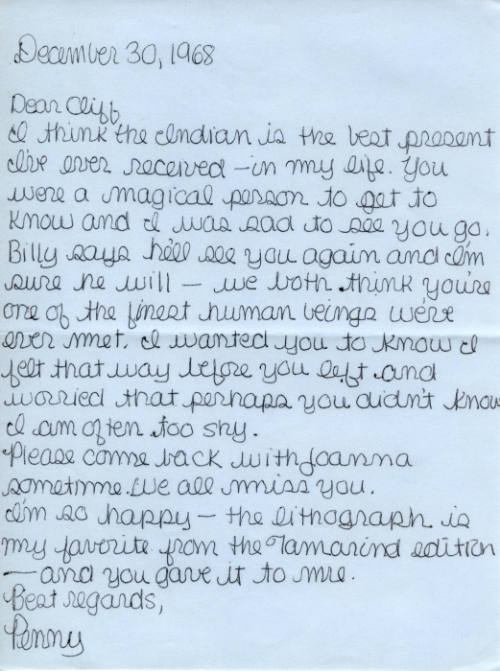 December 30, 1968
Dear Cliff
I think the Indian is the best present
I've ever received - in my life. You
were a magical person to get to
know and I was sad to see you go.
Billy says he'll see you again and I'm
sure he will - we both think you're
one of the finest human beings we've
ever met. I wanted you to know I
felt that way before you left and
worried that perhaps you didn't know
I am often too shy.
Please come back with Joanna
sometime. We all miss you.
I'm so happy - the lithograph is
my favorite from the Tamarind edition
- and you gave it to me.
Best regards,
Penny